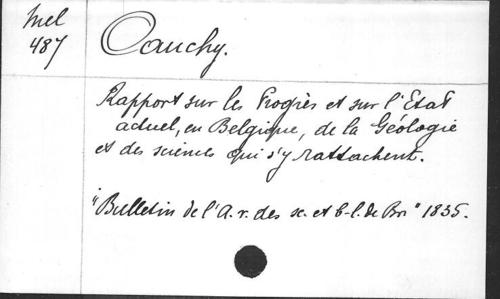 Mel
487
Cauchy.
Rapport sur les Progrès et sur l'Etat
actuel, en Belgique, de la Géologie
et des sciences qui s'y rattachent.
"Bulletin de l'A. r. des sc. et b-l. de Br" 1835.